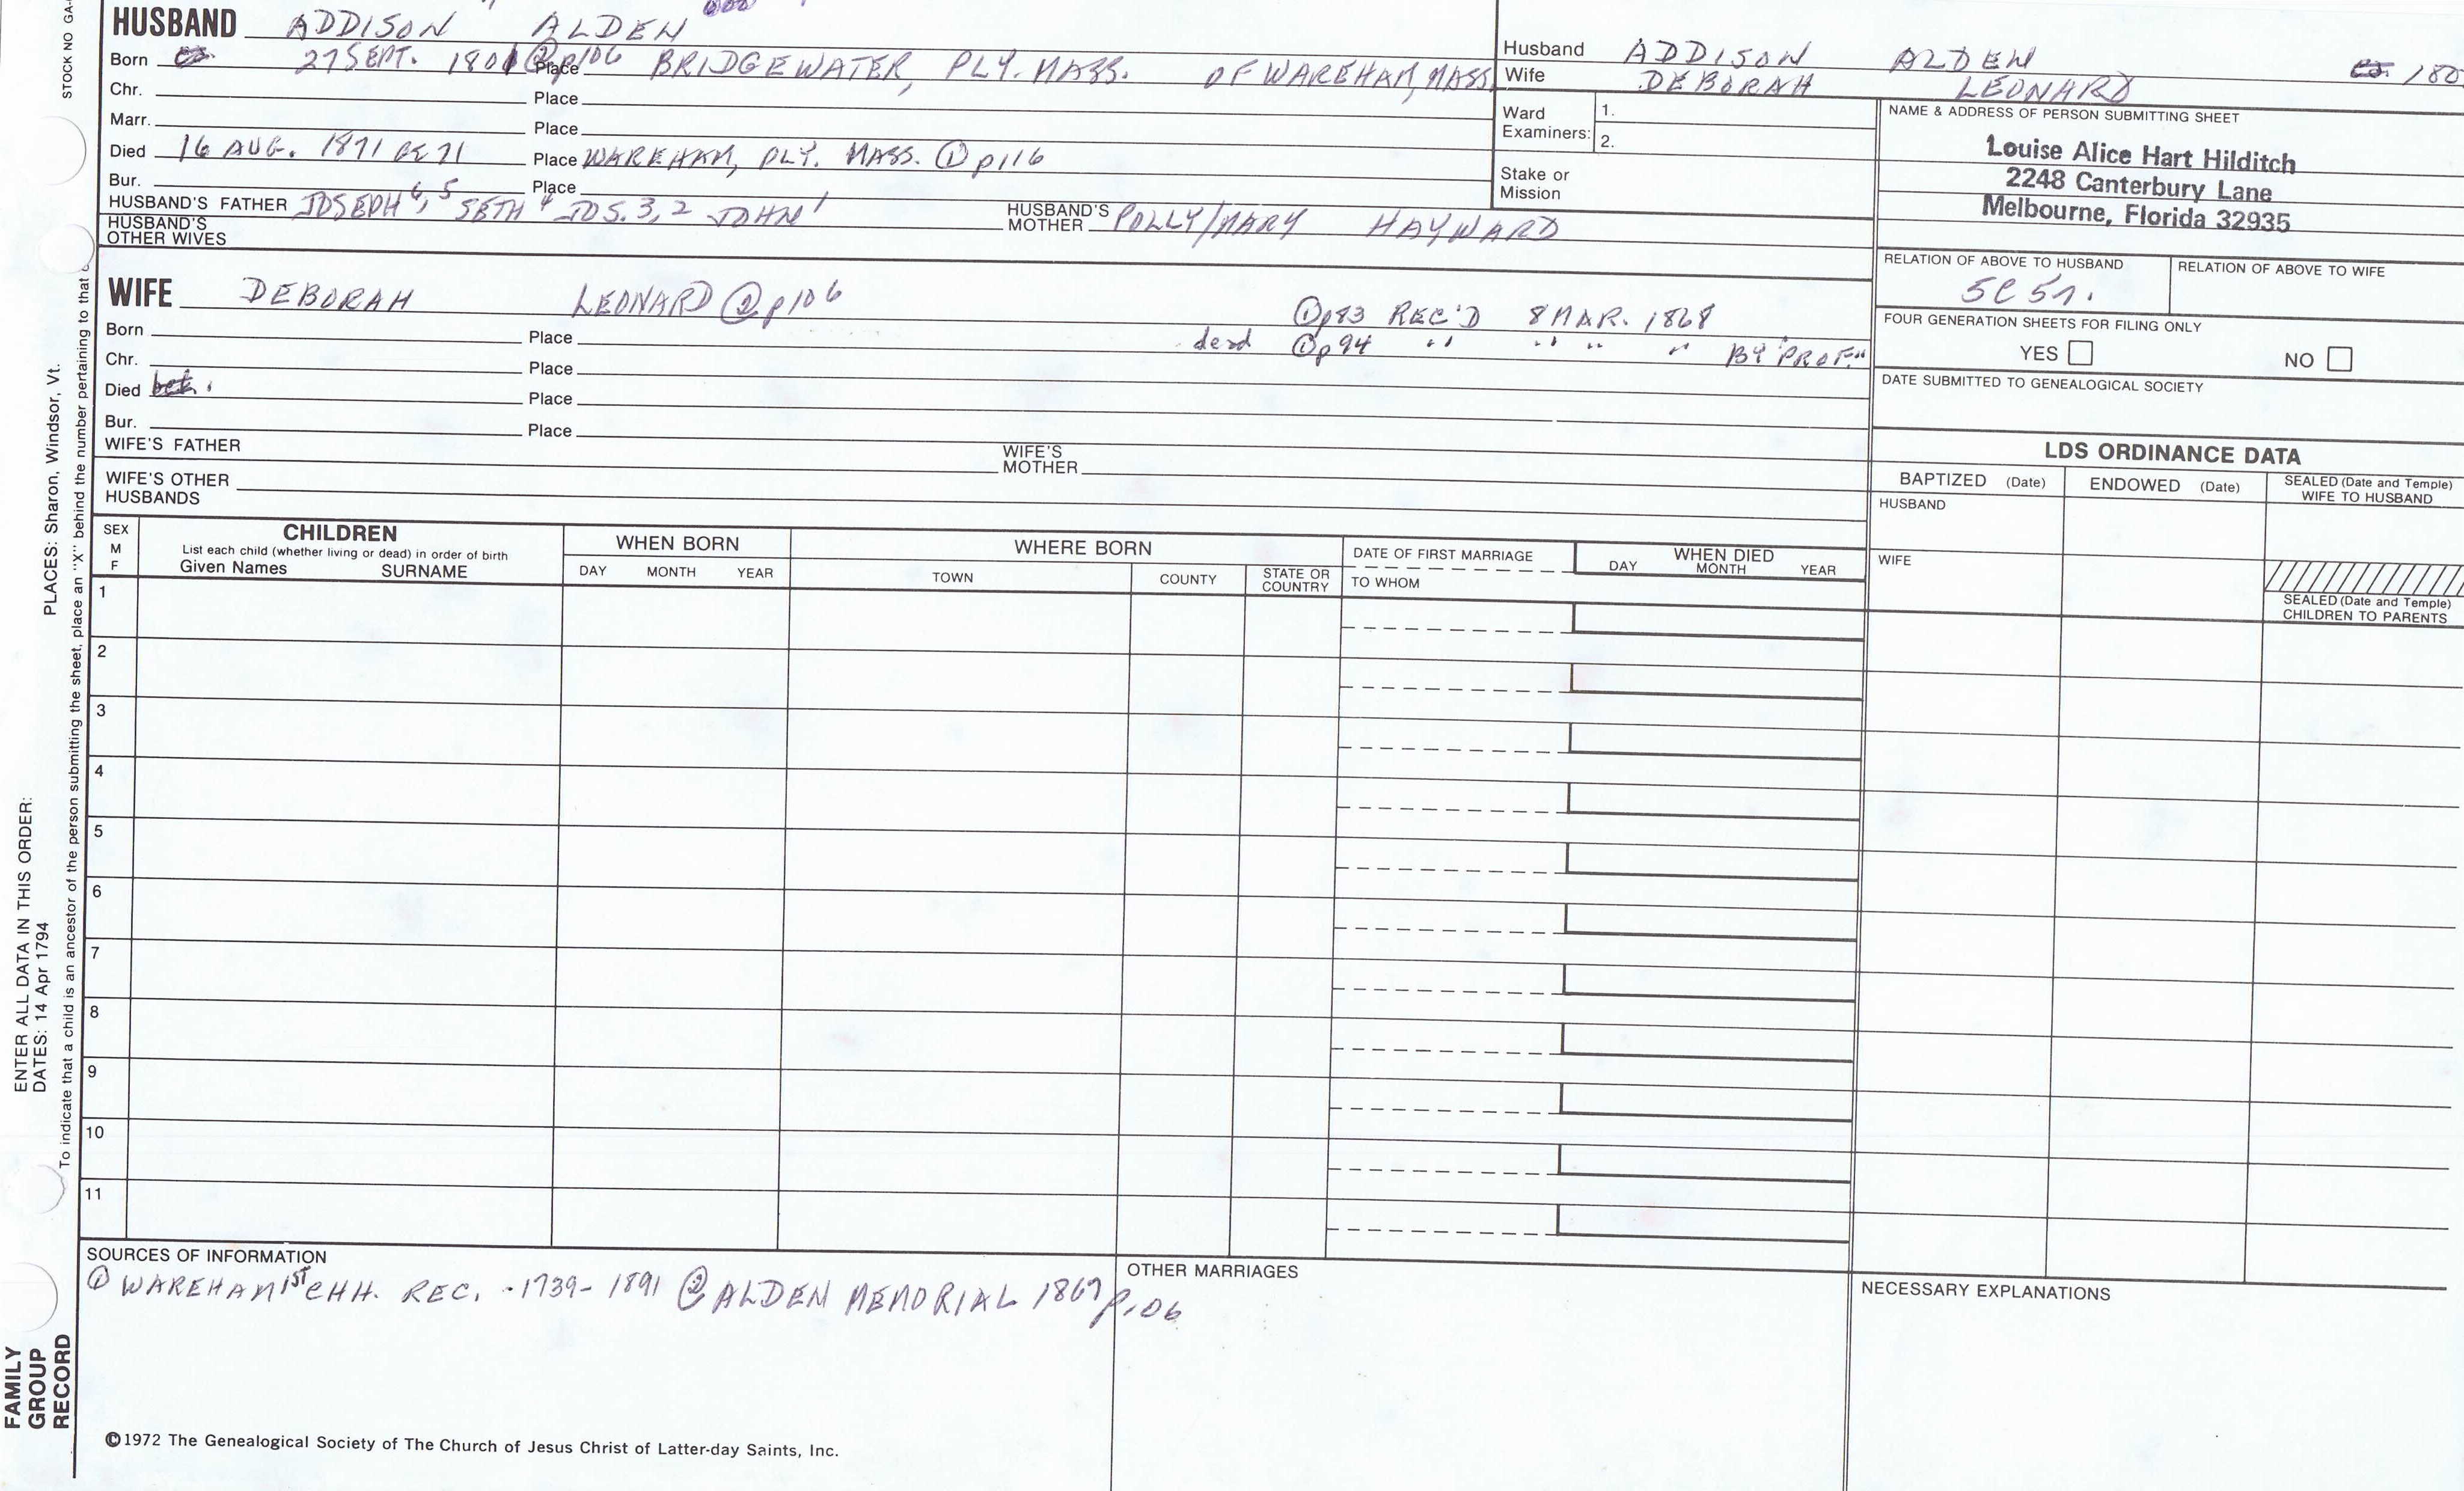 STOCK NO GA-
HUSBAND ADDISON ALDEN
Born 27 SEPT. 1801 ② p106 Place BRIDGEWATER, PLY. MASS. OF WAREHAM, MASS
Chr. Place
Marr. Place
Died 16 AUG. 1871 Æ 71 Place WAREHAM, PLY. MASS. ① p116
Bur. Place
HUSBAND'S FATHER JOSEPH 6, 5 SETH 4 JOS. 3, 2 JOHN 1 HUSBAND'S MOTHER POLLY/MARY HAYWARD
HUSBAND'S OTHER WIVES
WIFE DEBORAH LEONARD ② p106
① p83 REC'D 8 MAR. 1868
Born Place
dead ① p94 " " " " " BY "PROF."
Chr. Place
Died Place
Bur. Place
WIFE'S FATHER WIFE'S MOTHER
WIFE'S OTHER HUSBANDS
Husband ADDISON ALDEN 180
Wife DEBORAH LEONARD
Ward Examiners: 1.
2.
Stake or Mission
NAME & ADDRESS OF PERSON SUBMITTING SHEET
Louise Alice Hart Hilditch
2248 Canterbury Lane
Melbourne, Florida 32935
RELATION OF ABOVE TO HUSBAND RELATION OF ABOVE TO WIFE
FOUR GENERATION SHEETS FOR FILING ONLY
YES NO
DATE SUBMITTED TO GENEALOGICAL SOCIETY
LDS ORDINANCE DATA
BAPTIZED (Date) ENDOWED (Date) SEALED (Date and Temple) WIFE TO HUSBAND
HUSBAND
WIFE
SEALED (Date and Temple)
CHILDREN TO PARENTS
SEX
M
F
CHILDREN
List each child (whether living or dead) in order of birth
Given Names SURNAME
WHEN BORN
DAY MONTH YEAR
WHERE BORN
TOWN COUNTY STATE OR COUNTRY
DATE OF FIRST MARRIAGE
TO WHOM
WHEN DIED
DAY MONTH YEAR
1
2
3
4
5
6
7
8
9
10
11
SOURCES OF INFORMATION
① WAREHAM 1ST CHH. REC. -1739-1891 ② ALDEN MEMORIAL 1867 p106
OTHER MARRIAGES
NECESSARY EXPLANATIONS
©1972 The Genealogical Society of The Church of Jesus Christ of Latter-day Saints, Inc.
ENTER ALL DATA IN THIS ORDER:
DATES: 14 Apr 1794
PLACES: Sharon, Windsor, Vt.
To indicate that a child is an ancestor of the person submitting the sheet, place an "X" behind the number pertaining to that
FAMILY
GROUP
RECORD